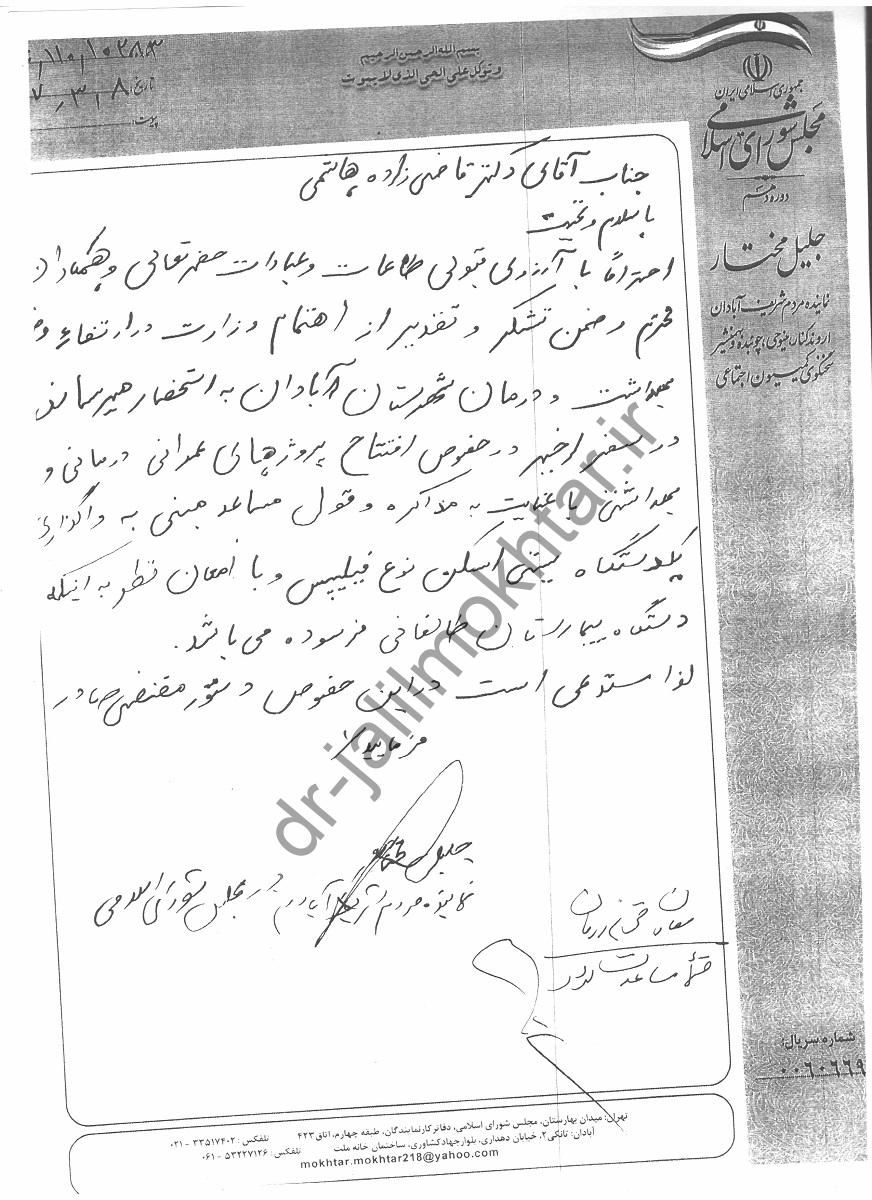 بسم الله الرحمن الرحیم
و توکل علی الحی الذی لا یموت
۱۱۰/۱۰۲۸۸۳
تاریخ: ۷/۳/۸
پیوست:
جمهوری اسلامی ایران
مجلس شورای اسلامی
دوره دهم
جلیل مختار
نماینده مردم شریف آبادان
اروندکنار، مینوحی، چوئبده و بهمنشیر
سخنگوی کمیسیون اجتماعی
جناب آقای دکتر قاضی زاده هاشمی
با سلام و تحیت
احتراماً با آرزوی قبولی طاعات و عبادات حضرتعالی و همکاران
محترم و ضمن تشکر و تقدیر از اهتمام وزارت در ارتقاء
بهداشت و درمان شهرستان آبادان به استحضار میرساند
در سفر اخیر در خصوص افتتاح پروژهای عمرانی درمانی و
بهداشتی با عنایت به مذاکره و قول مساعد مبنی به واگذاری
یکدستگاه سیتی اسکن نوع فیلیپس و با امعان نظر به اینکه
دستگاه بیمارستان طالقانی فرسوده می باشد.
لذا مستدعی است در این خصوص دستور مقتضی صادر
فرمایید
جلیل مختار
نماینده مردم شریف آبادان در مجلس شورای اسلامی
معاون محترم درمان
مساعدت
dr-jalilmokhtar.ir
شماره سریال:
۰۰۶۰۶۶۹
تهران: میدان بهارستان، مجلس شورای اسلامی، دفاتر کار نمایندگان، طبقه چهارم، اتاق ۴۲۳ تلفکس: ۳۳۵۱۷۴۰۲ - ۰۲۱
آبادان: تانکی ۲، خیابان دهداری، بلوار جهاد کشاورزی، ساختمان خانه ملت تلفکس: ۵۳۲۲۷۱۲۶ - ۰۶۱
mokhtar.mokhtar218@yahoo.com